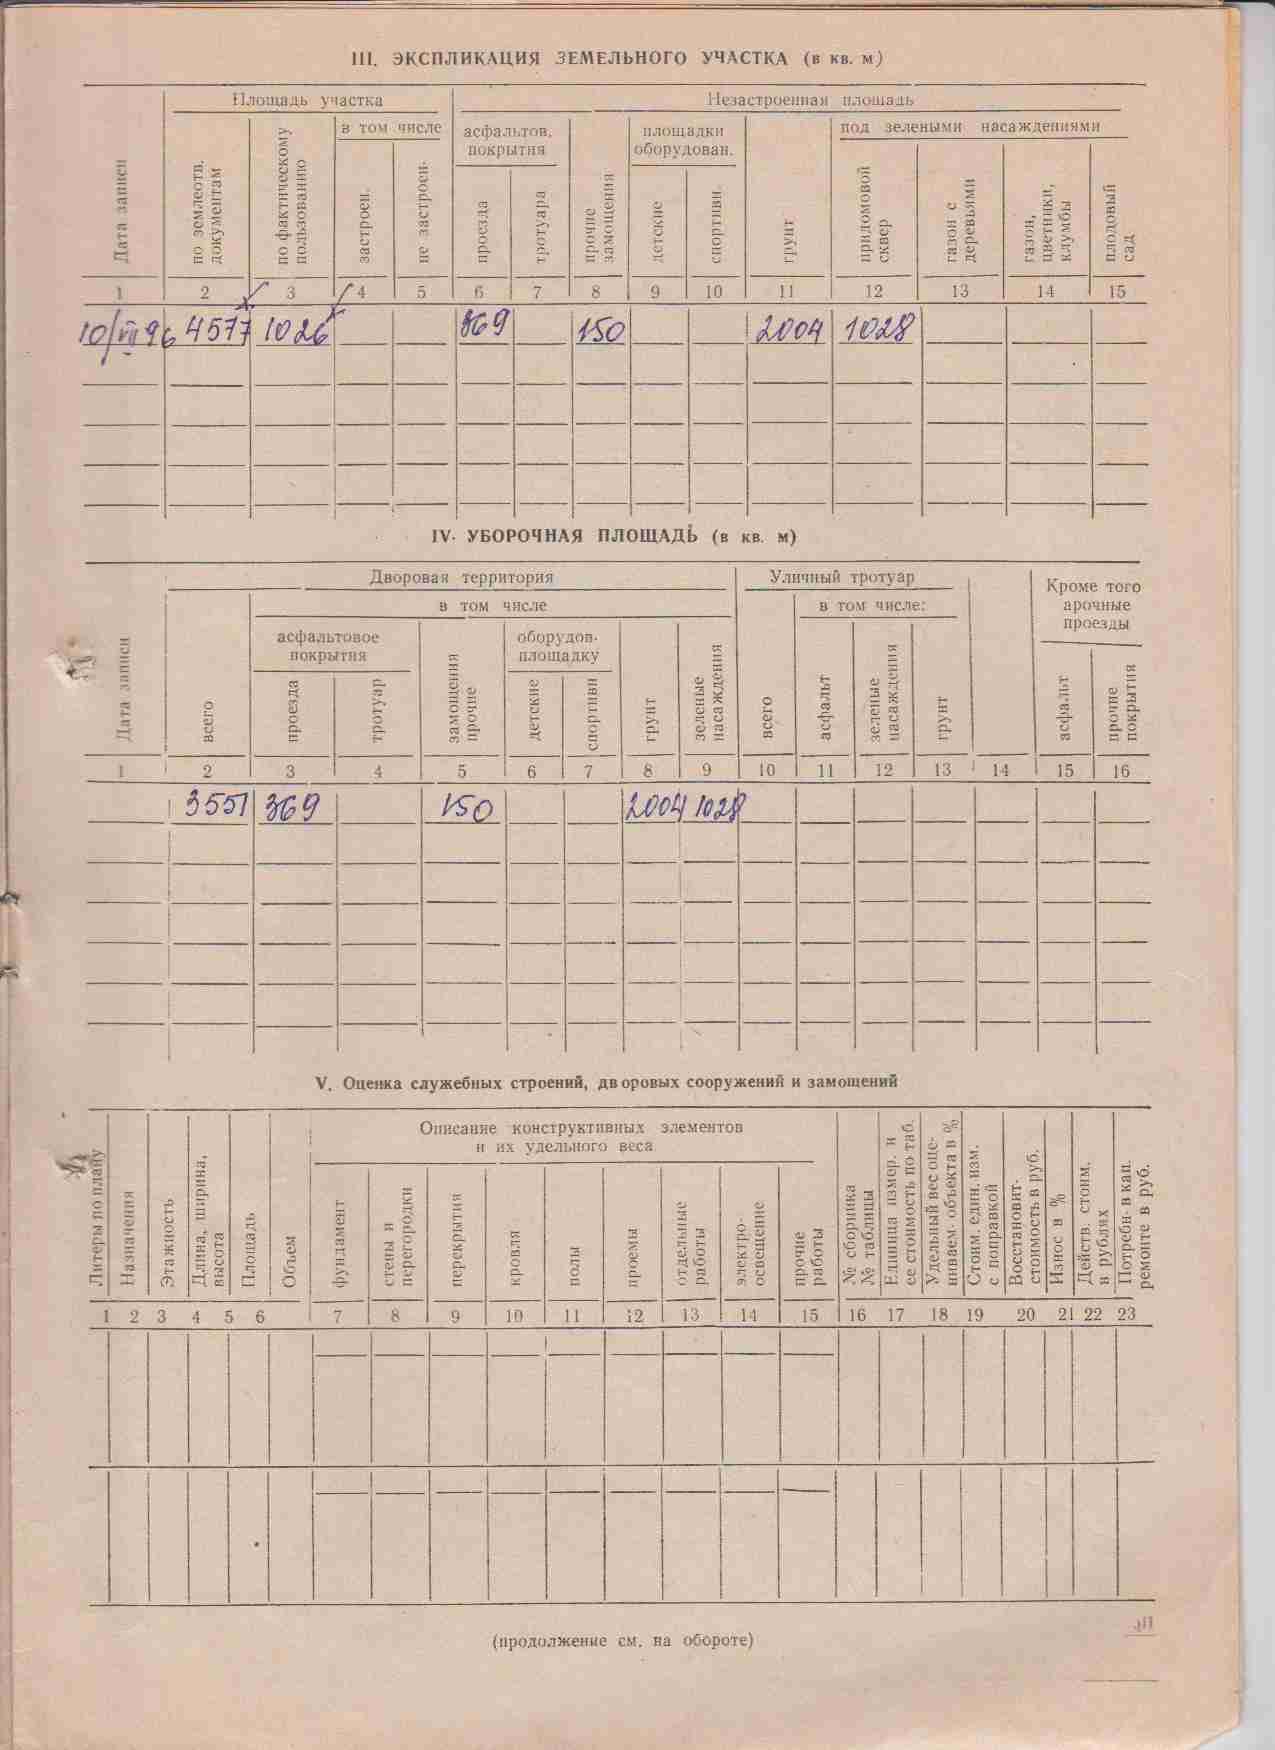 III. ЭКСПЛИКАЦИЯ ЗЕМЕЛЬНОГО УЧАСТКА (в кв. м)
Дата записи
Площадь участка
по землеотв. документам
по фактическому пользованию
в том числе
застроен.
не застроен.
Незастроенная площадь
асфальтов. покрытия
проезда
тротуара
прочие замощения
площадки оборудован.
детские
спортивн.
грунт
под зелеными насаждениями
придомовой сквер
газон с деревьями
газон, цветники, клумбы
плодовый сад
1 2 3 4 5 6 7 8 9 10 11 12 13 14 15
10/VII 96 4577 1026 369 150 2004 1028
IV. УБОРОЧНАЯ ПЛОЩАДЬ (в кв. м)
Дата записи
Дворовая территория
всего
в том числе
асфальтовое покрытия
проезда
тротуар
замощения прочие
оборудов- площадку
детские
спортивн
грунт
зеленые насаждения
Уличный тротуар
всего
в том числе:
асфальт
зеленые насаждения
грунт
Кроме того арочные проезды
асфальт
прочие покрытия
1 2 3 4 5 6 7 8 9 10 11 12 13 14 15 16
3551 369 150 2004 1028
V. Оценка служебных строений, дворовых сооружений и замощений
Литеры по плану
Назначения
Этажность
Длина, ширина, высота
Площадь
Объем
Описание конструктивных элементов
и их удельного веса
фундамент
стены и перегородки
перекрытия
кровля
полы
проемы
отдельные работы
электро- освещение
прочие работы
№ сборника № таблицы
Единица измер. и ее стоимость по таб.
Удельный вес оце- ниваем. объекта в %
Стоим. един. изм. с поправкой
Восстановит- стоимость в руб.
Износ в %
Действ. стоим. в рублях
Потребн- в кап. ремонте в руб.
1 2 3 4 5 6 7 8 9 10 11 12 13 14 15 16 17 18 19 20 21 22 23
(продолжение см. на обороте)